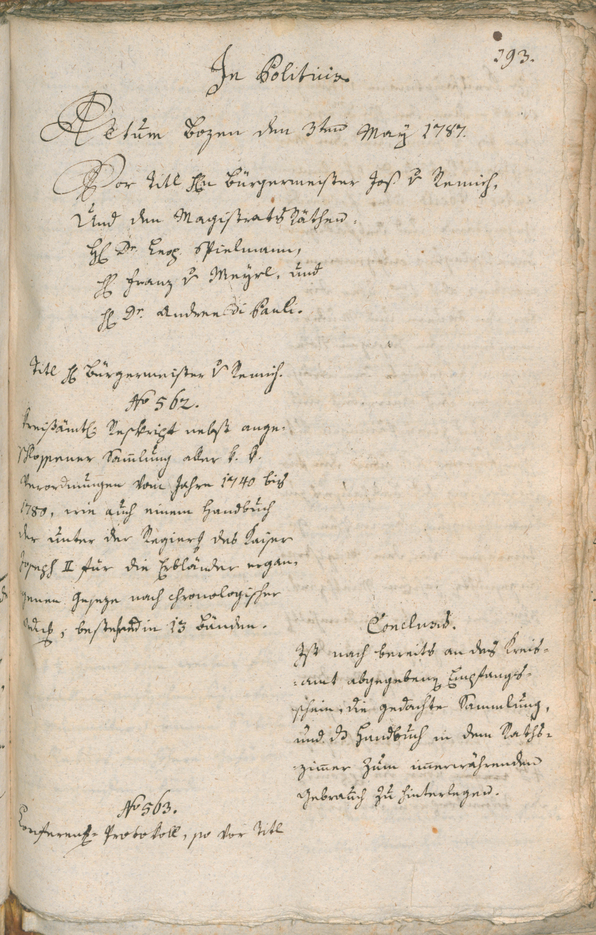 393.
In Politicis
Actum Bozen den 3ten May 1787.
Vor Titl Hn Bürgermeister Jos. v Remich,
Und den Magistrats Räthen.
H Dr. Leop. Spielmann,
H Franz v Mayrl, und
H Dr. Andree di Pauli.
Titl H Bürgermeister v Remich.
No 562.
Kreisämtl: Reskript nebst ange-
schlossener Sammlung aller k. k.
Verordnungen vom Jahre 1740 bis
1780, wie auch einem Handbuch
der unter der Regierg des Kaiser
Joseph II für die Erbländer ergan-
genen Geseze nach chronologischer
bestehend in 13 Bänden.
Conclusum.
Ist nach bereits an das Kreis-
amt abgegebenen Empfangs-
schein, die gedachte Sammlung,
und das Handbuch in dem Raths-
zimmer zum immerwährenden
Gebrauch zu hinterlegen.
No 563.
Conferenz-Protokoll, so vor Titl